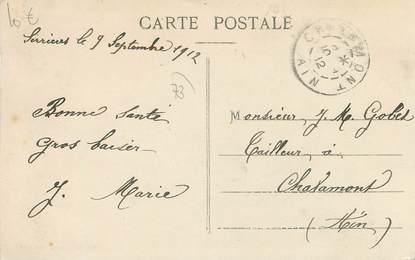 10 €
CARTE POSTALE
le 9 Septembre 1912
CHALAMONT
AIN
12
73
Bonne Santé
gros baiser
J. Marie
Monsieur J. M. Gobet
Tailleur à
Chalamont
(Ain)